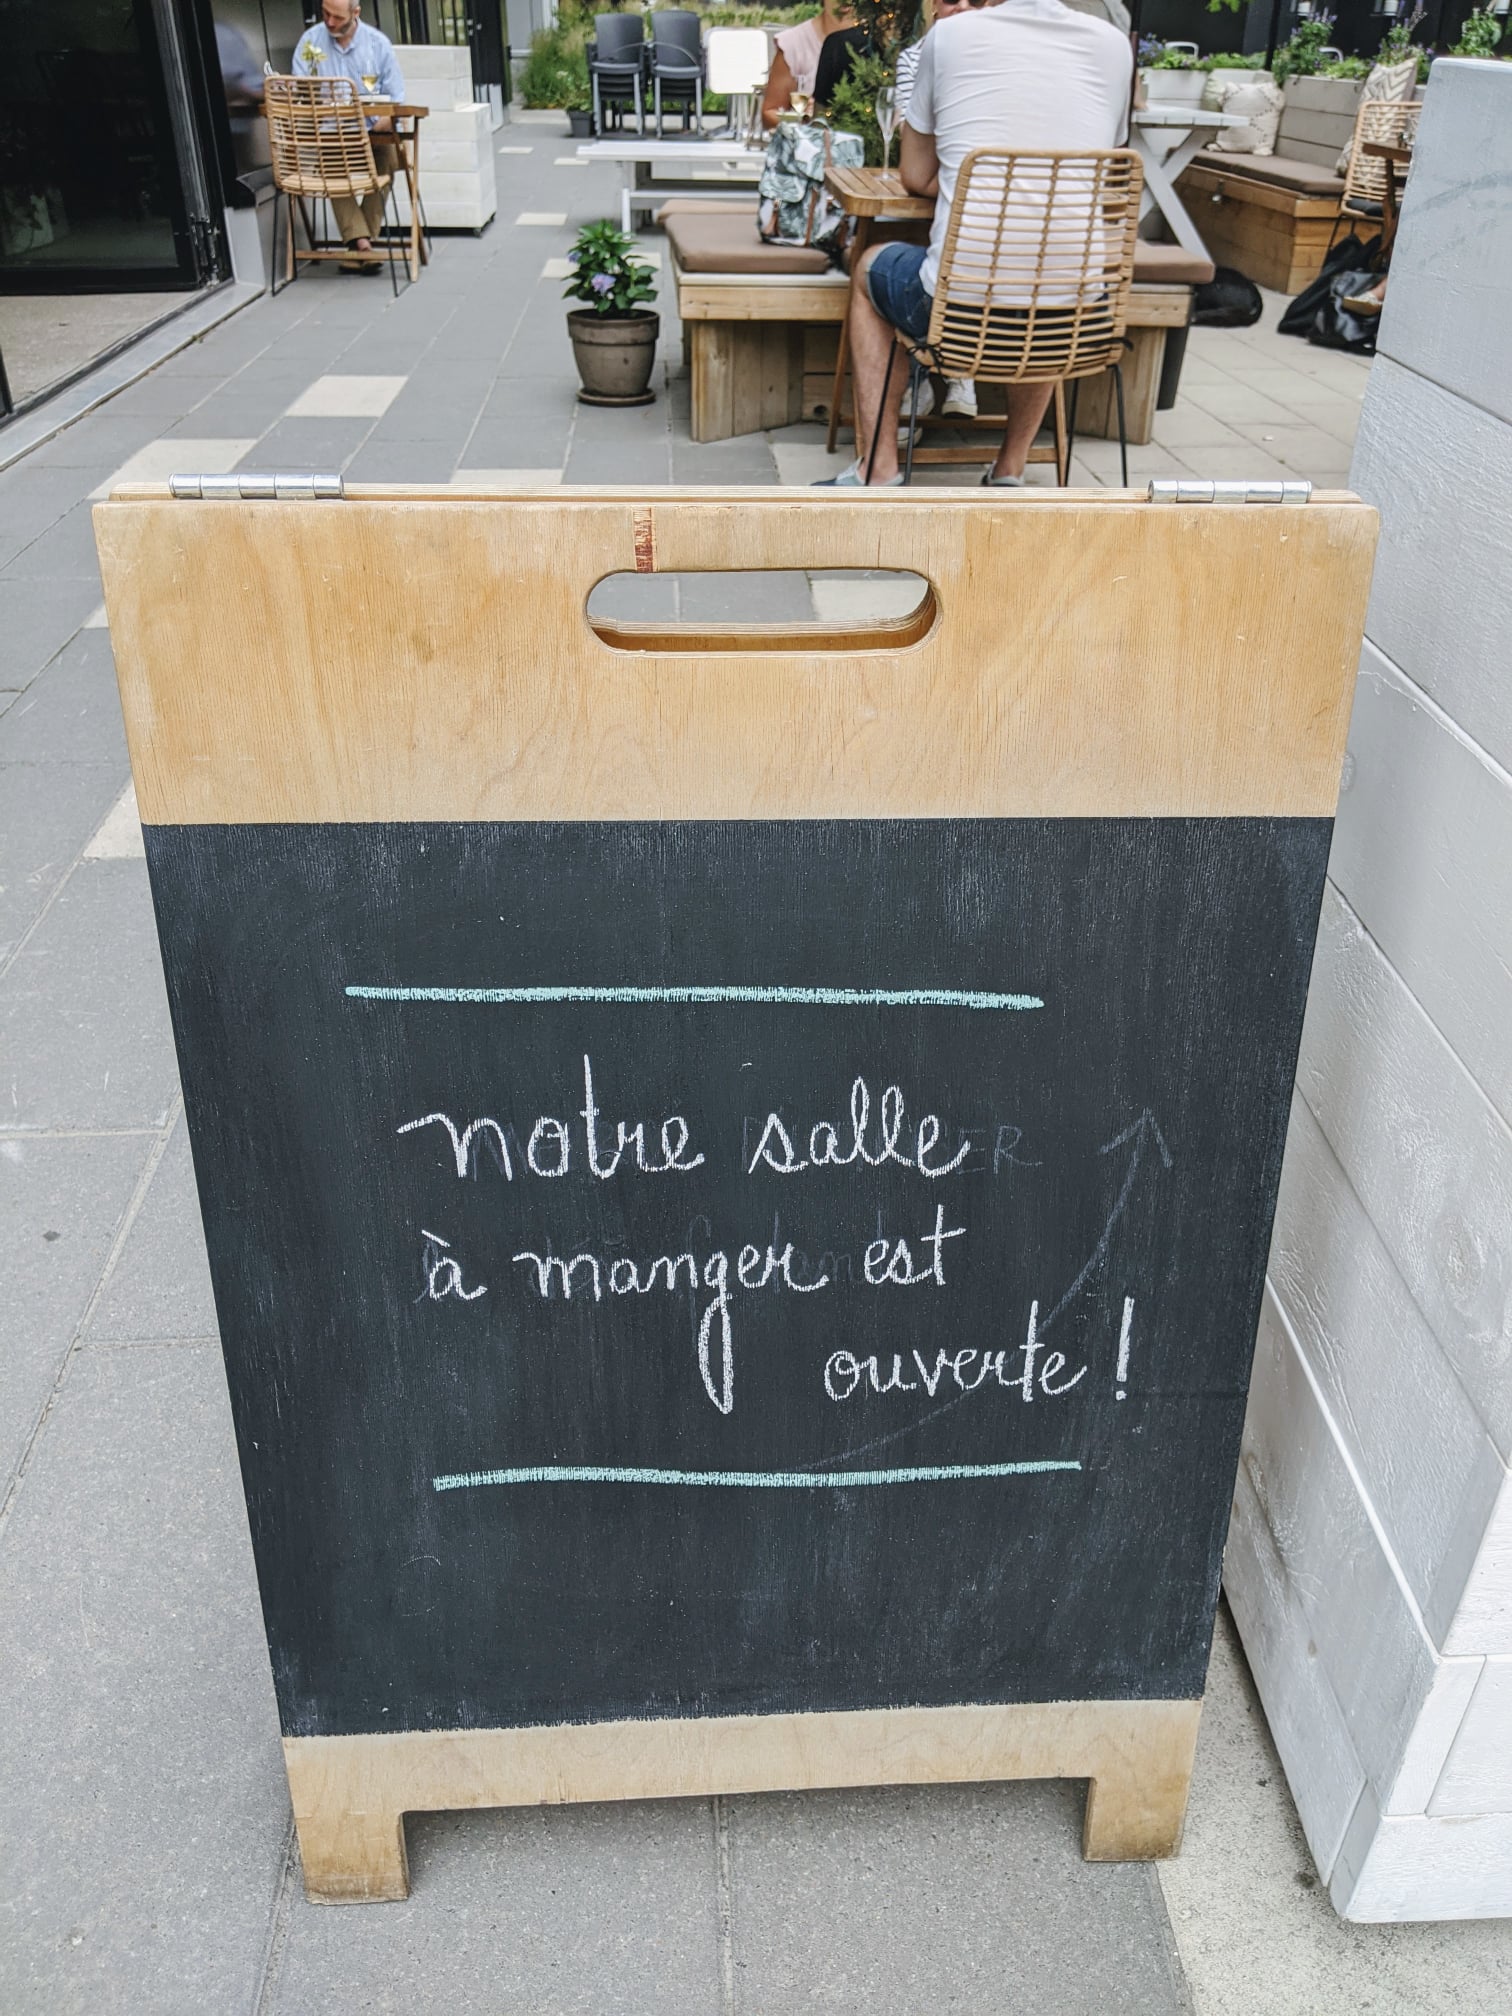 notre salle
à manger est
ouverte !